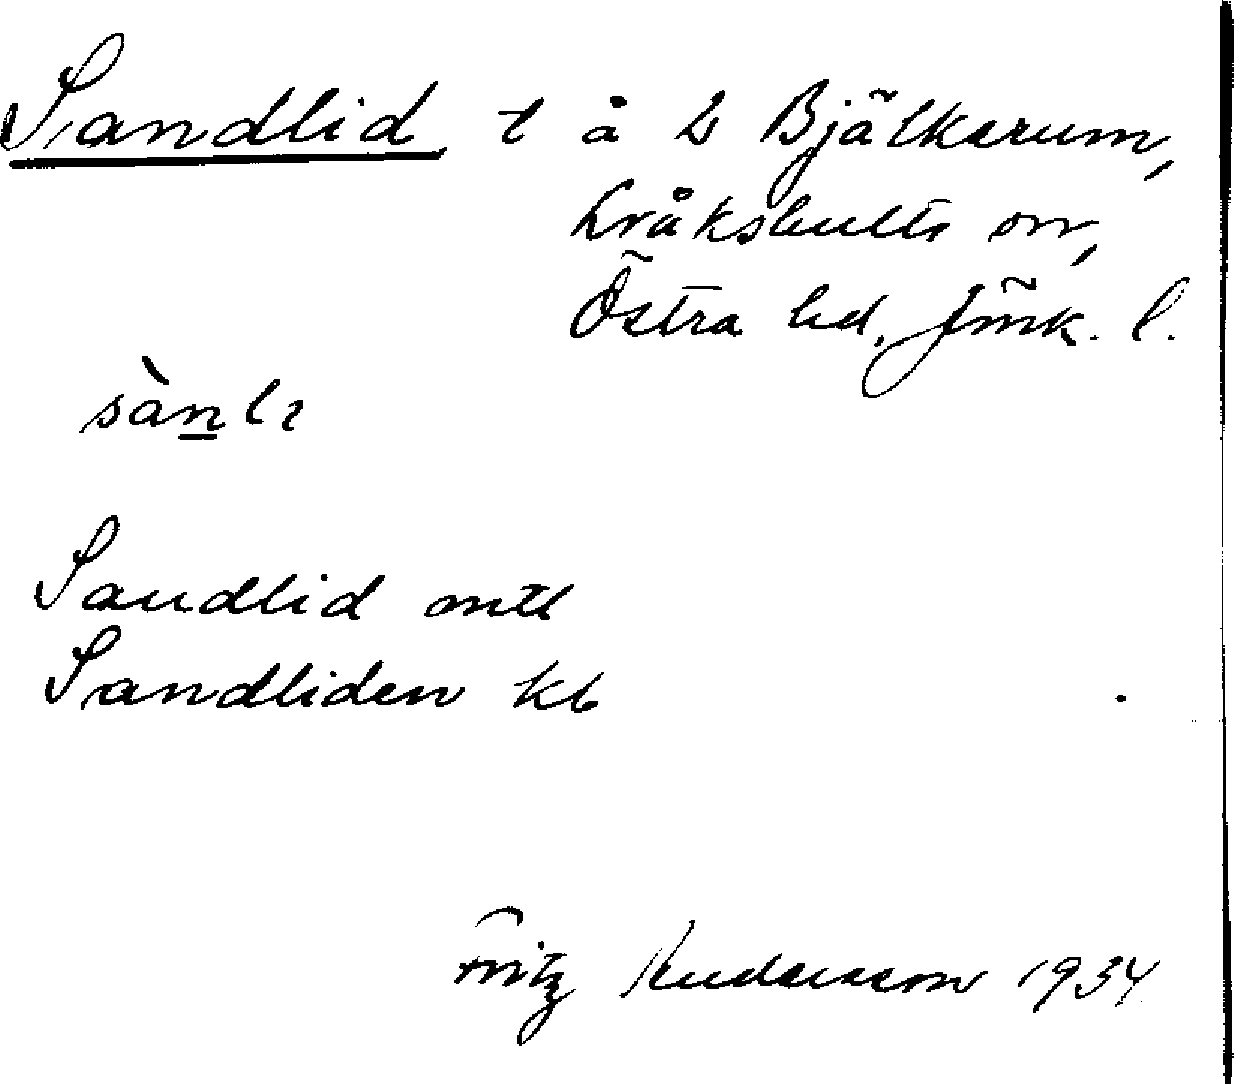 Sandlid t å 2 Bjälkarum,
Kråkshults sn,
Östra hd, Jönk. l.
sànlı
Sandlid mtl
Sandliden kb
Fritz Andersson 1934